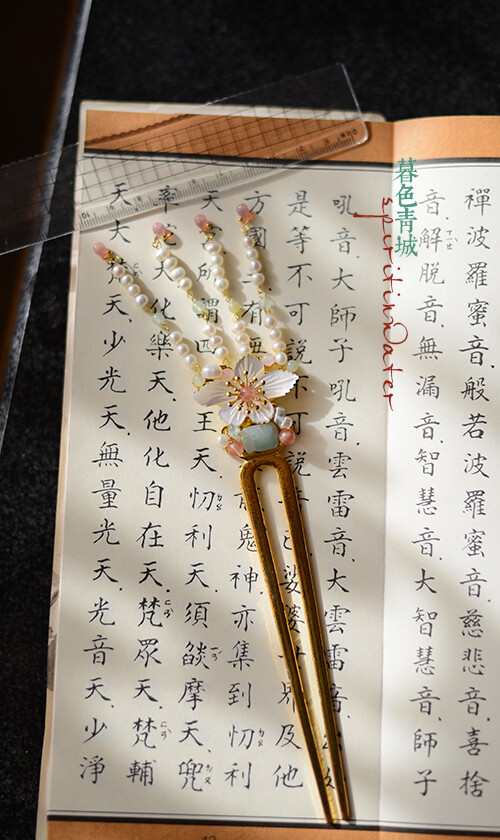 暮色青城
spiritinwater
禪波羅蜜音、般若波羅蜜音、慈悲音、喜捨
音、解脫音、無漏音、智慧音、大智慧音、師子
吼音、大師子吼音、雲雷音、大雲雷音、
是等不可說不可說音已娑婆 界及他
方國 有無 鬼神亦集到忉利
天 所謂四 王天、忉利天、須燄摩天、兜
率陀天、化樂天、他化自在天、梵眾天、梵輔
天、大梵天、少光天、無量光天、光音天、少淨